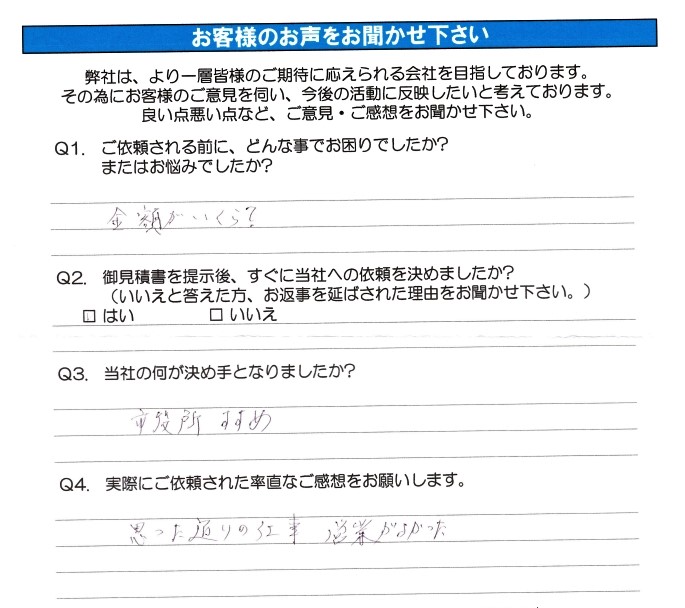 お客様のお声をお聞かせ下さい
弊社は、より一層皆様のご期待に応えられる会社を目指しております。
その為にお客様のご意見を伺い、今後の活動に反映したいと考えております。
良い点悪い点など、ご意見・ご感想をお聞かせ下さい。
Q1. ご依頼される前に、どんな事でお困りでしたか?
またはお悩みでしたか?
金額がいくら?
Q2. 御見積書を提示後、すぐに当社への依頼を決めましたか?
(いいえと答えた方、お返事を延ばされた理由をお聞かせ下さい。)
□ はい □ いいえ
Q3. 当社の何が決め手となりましたか?
市役所 すすめ
Q4. 実際にご依頼された率直なご感想をお願いします。
思った通りの工事 営業がよかった